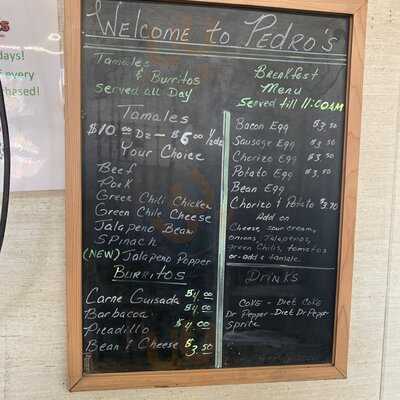 days!
every
chased!
Welcome to Pedro's
Tamales
& Burritos
Served all Day
Tamales
$10.00 Dz - $6.00 1/2dz
Your Choice
Beef
Pork
Green Chili Chicken
Green Chile Cheese
Jalapeno Bean
Spinach
(NEW) Jalapeno Pepper
Burritos
Carne Guisada $4.00
Barbacoa $4.00
Picadillo $4.00
Bean & Cheese $3.50
Breakfast
Menu
Served till 11:00AM
Bacon Egg $3.50
Sausage Egg $3.50
Chorizo Egg $3.50
Potato Egg $3.50
Bean Egg
Chorizo & Potato $3.70
Add on
Cheese, sour cream,
onions, Jalapenos,
green chilis, tomatos
or - add a tamale.
Drinks
Coke - Diet Coke
Dr Pepper - Diet Dr Pepper
Sprite